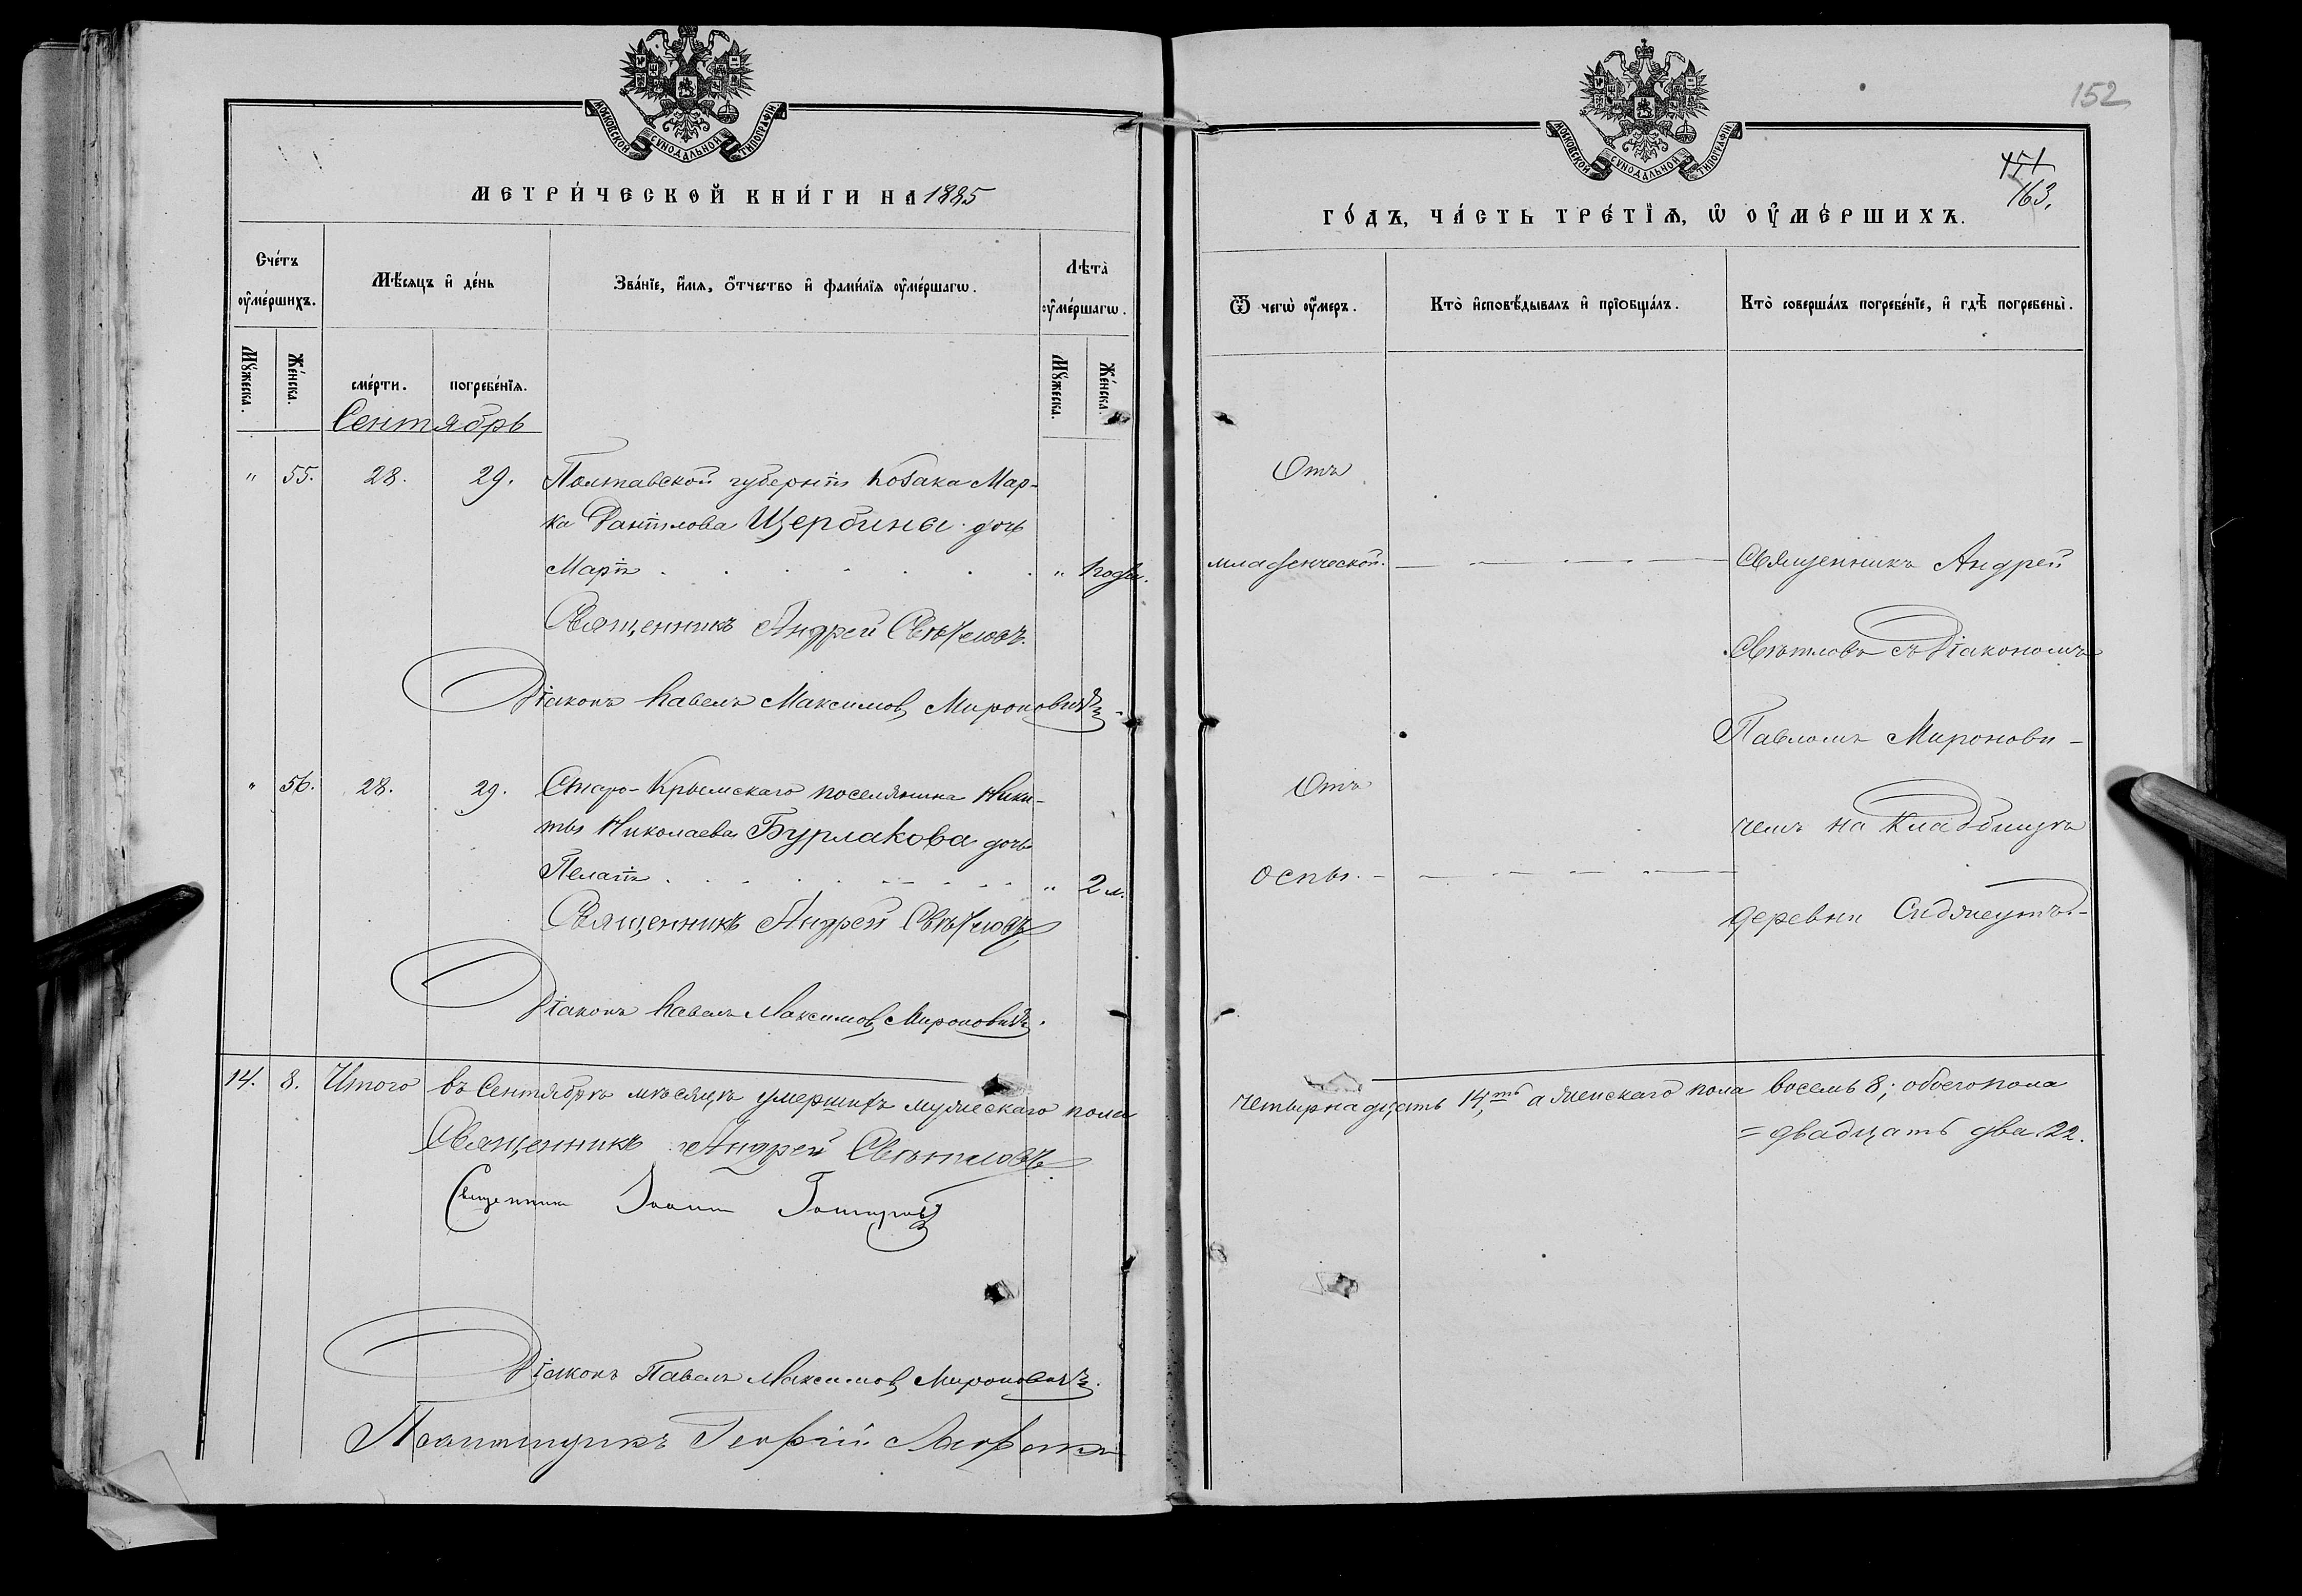 МОСКОВСКОЙ СѴНОДАЛЬНОЙ ТИПОГРАФІИ
МЕТРИ́ЧЕСКОЙ КНИ́ГИ НА 1885
Сче́тъ ᲂу҆ме́ршихъ.
Мѣ́сяцъ и҆ де́нь
Зва́нїе, и҆́мѧ, ѻ҆́тчество и҆ фами́лїѧ ᲂу҆ме́ршагѡ.
Лѣта̀ ᲂу҆ме́ршагѡ.
Мꙋ́жеска.
Же́нска.
сме́рти.
погребе́нїѧ.
Мꙋ́жеска.
Же́нска.
Сентябрь
" 55. 28. 29. Полтавской губерніи Козака Мар-
ка Даніилова Щербины дочь
Марія " 1 годъ.
Священникъ Андрей Свѣтловъ.
Діаконъ Павелъ Максимовъ Мироновичъ
" 56. 28. 29. Старо-Крымскаго поселянина Ники-
ты Николаева Бурлакова дочь
Пелагія " 2 м.
Священникъ Андрей Свѣтловъ
Діаконъ Павелъ Максимовъ Мироновичъ.
14. 8. Итого въ Сентябрѣ мѣсяцѣ умершихъ мужескаго пола
Священникъ Андрей Свѣтловъ
Священникъ Іоаннъ
Діаконъ Павелъ Максимовъ Мироновичъ.
Псаломщикъ Георгій
МОСКОВСКОЙ СѴНОДАЛЬНОЙ ТИПОГРАФІИ
152
151
163.
ГО́ДЪ, ЧА́СТЬ ТРЕ́ТЇѦ, Ѽ ОУ҆МЕ́РШИХЪ.
Ѿ чегѡ̀ ᲂу҆́меръ.
Кто̀ и҆сповѣ́дывалъ и҆ прїобща́лъ.
Кто̀ соверша́лъ погребе́нїе, и҆ гдѣ̀ погребены̀.
Отъ
младенческой. Священникъ Андрей
Свѣтловъ съ Діакономъ
Павломъ Миронови-
Отъ
чемъ на кладбищѣ
оспы.
деревни
четырнадцать 14,ть а женскаго пола восемь 8; обоего пола
= двадцать два 22.